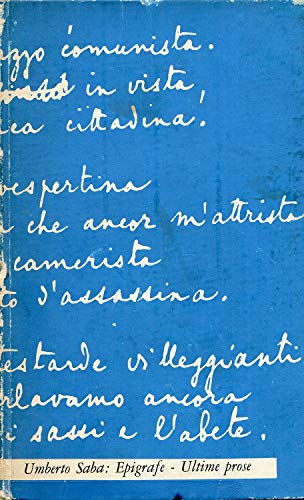 ozzo comunista.
in vista,
ca cittadina!
vespertina
che ancor m'attrista
camerista
to d'assassina.
testarde villeggianti
rlavamo ancora
i sassi e l'abete.
Umberto Saba: Epigrafe - Ultime prose